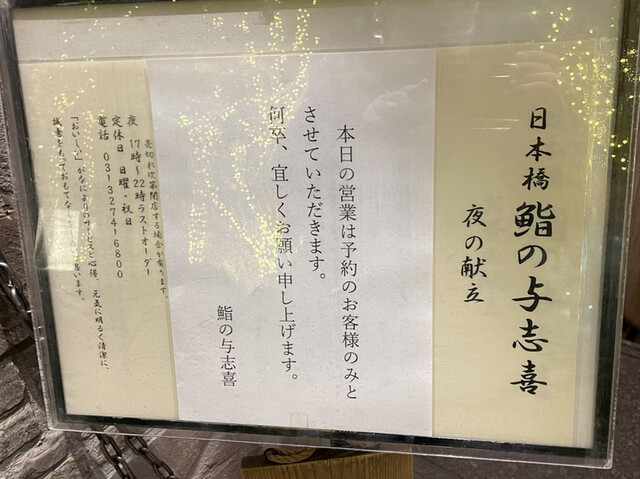 日本橋 鮨の与志喜
夜の献立
本日の営業は予約のお客様のみと
させていただきます。
何卒、宜しくお願い申し上げます。
鮨の与志喜
売切れ次第閉店する場合が有ります。
夜 17時〜22時ラストオーダー
定休日 日曜・祝日
電話 03-3274-6800
「おいしい」がなによりのサービスと心得、元気に明るく清潔に、
誠意をもっておもてな
います。